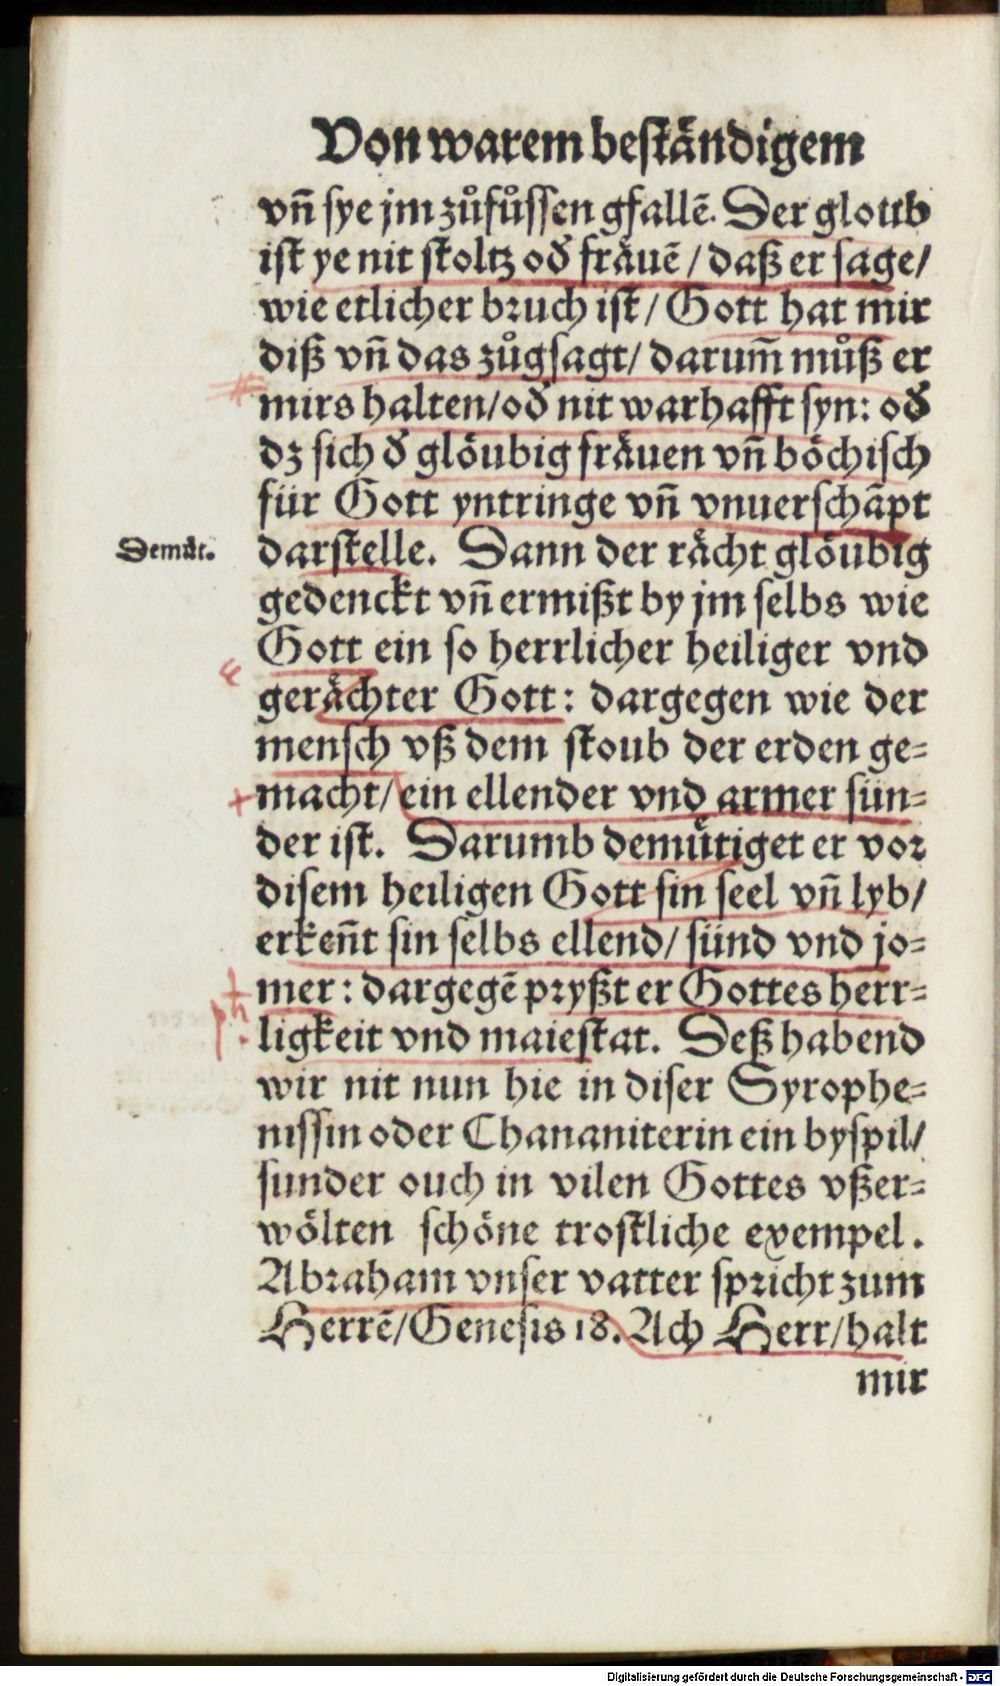 Von warem beständigem
vñ sye jm zůfůssen gfallẽ. Der gloub
ist ye nit stoltz oď fräuẽ / daß er sage /
wie etlicher bruch ist / Gott hat mir
diß vñ das zůgsagt / darum̃ můß er
mirs halten / oď nit warhafft syn: oď
dz sich ď glöubig fräuen vñ böchisch
für Gott yntringe vñ vnuerschãpt
Demůt.
darstelle. Dann der rächt glöubig
gedenckt vñ ermißt by jm selbs wie
Gott ein so herrlicher heiliger vnd
gerächter Gott: dargegen wie der
mensch vß dem stoub der erden ge=
macht / ein ellender vnd armer sün=
der ist. Darumb demuͤtiget er vor
disem heiligen Gott sin seel vñ lyb /
erkeñt sin selbs ellend / sünd vnd jo=
mer: dargegẽ pryßt er Gottes herr=
ligkeit vnd maiestat. Deß habend
wir nit nun hie in diser Syrophe=
nissin oder Chananiterin ein byspil /
sunder ouch in vilen Gottes vßer=
wölten schöne trostliche exempel.
Abraham vnser vatter spricht zum
Herrẽ / Genesis 18. Ach Herr / halt
mir
Digitalisierung gefördert durch die Deutsche Forschungsgemeinschaft - DFG